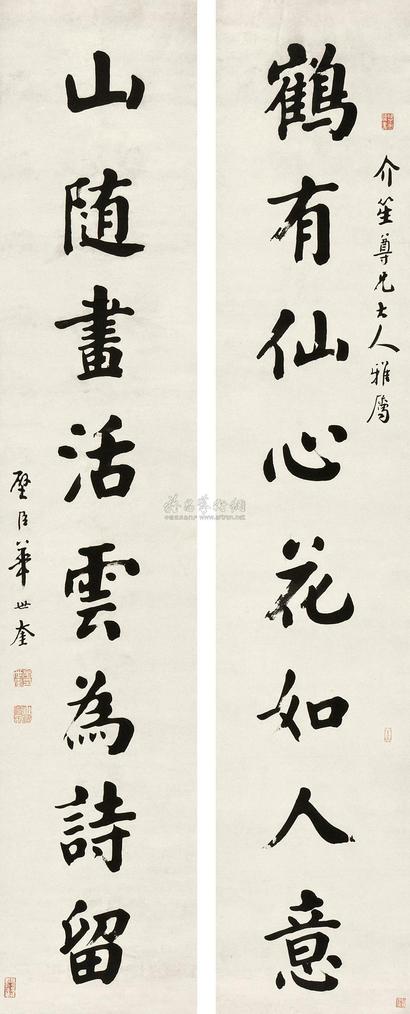 介笙尊兄大人雅屬
鶴有仙心花如人意
山随畫活雲為詩留
璧臣華世奎
www.artron.net